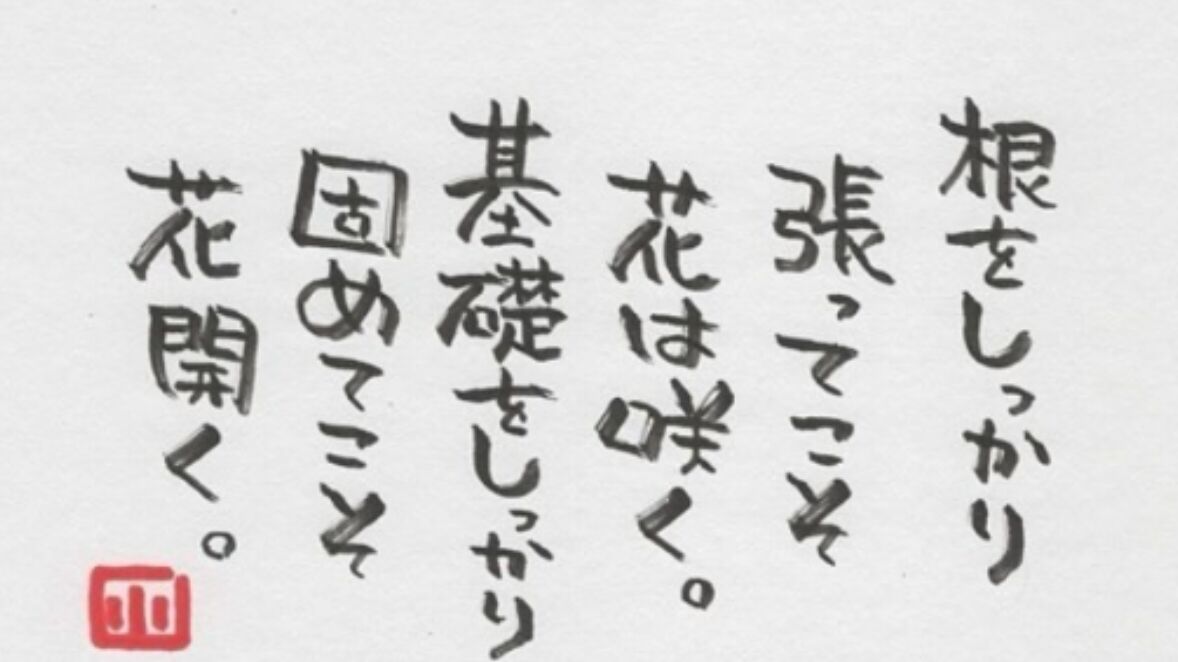 根をしっかり
張ってこそ
花は咲く。
基礎をしっかり
固めてこそ
花開く。